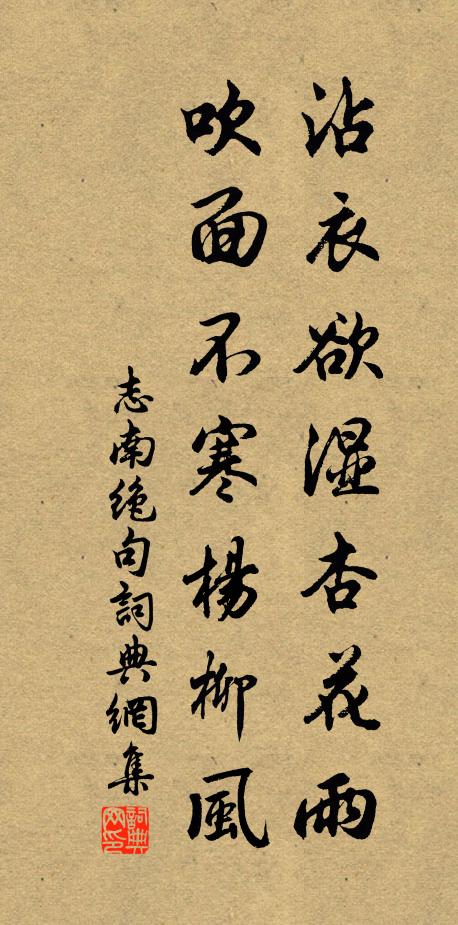 沾衣欲湿杏花雨
吹面不寒楊柳風
志南绝句詞典網集
詞典网印